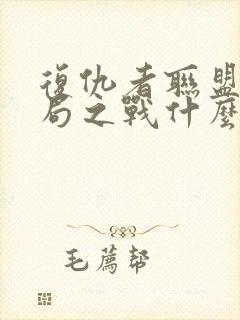 復仇者聯盟
局之戰什麼
毛薦幫